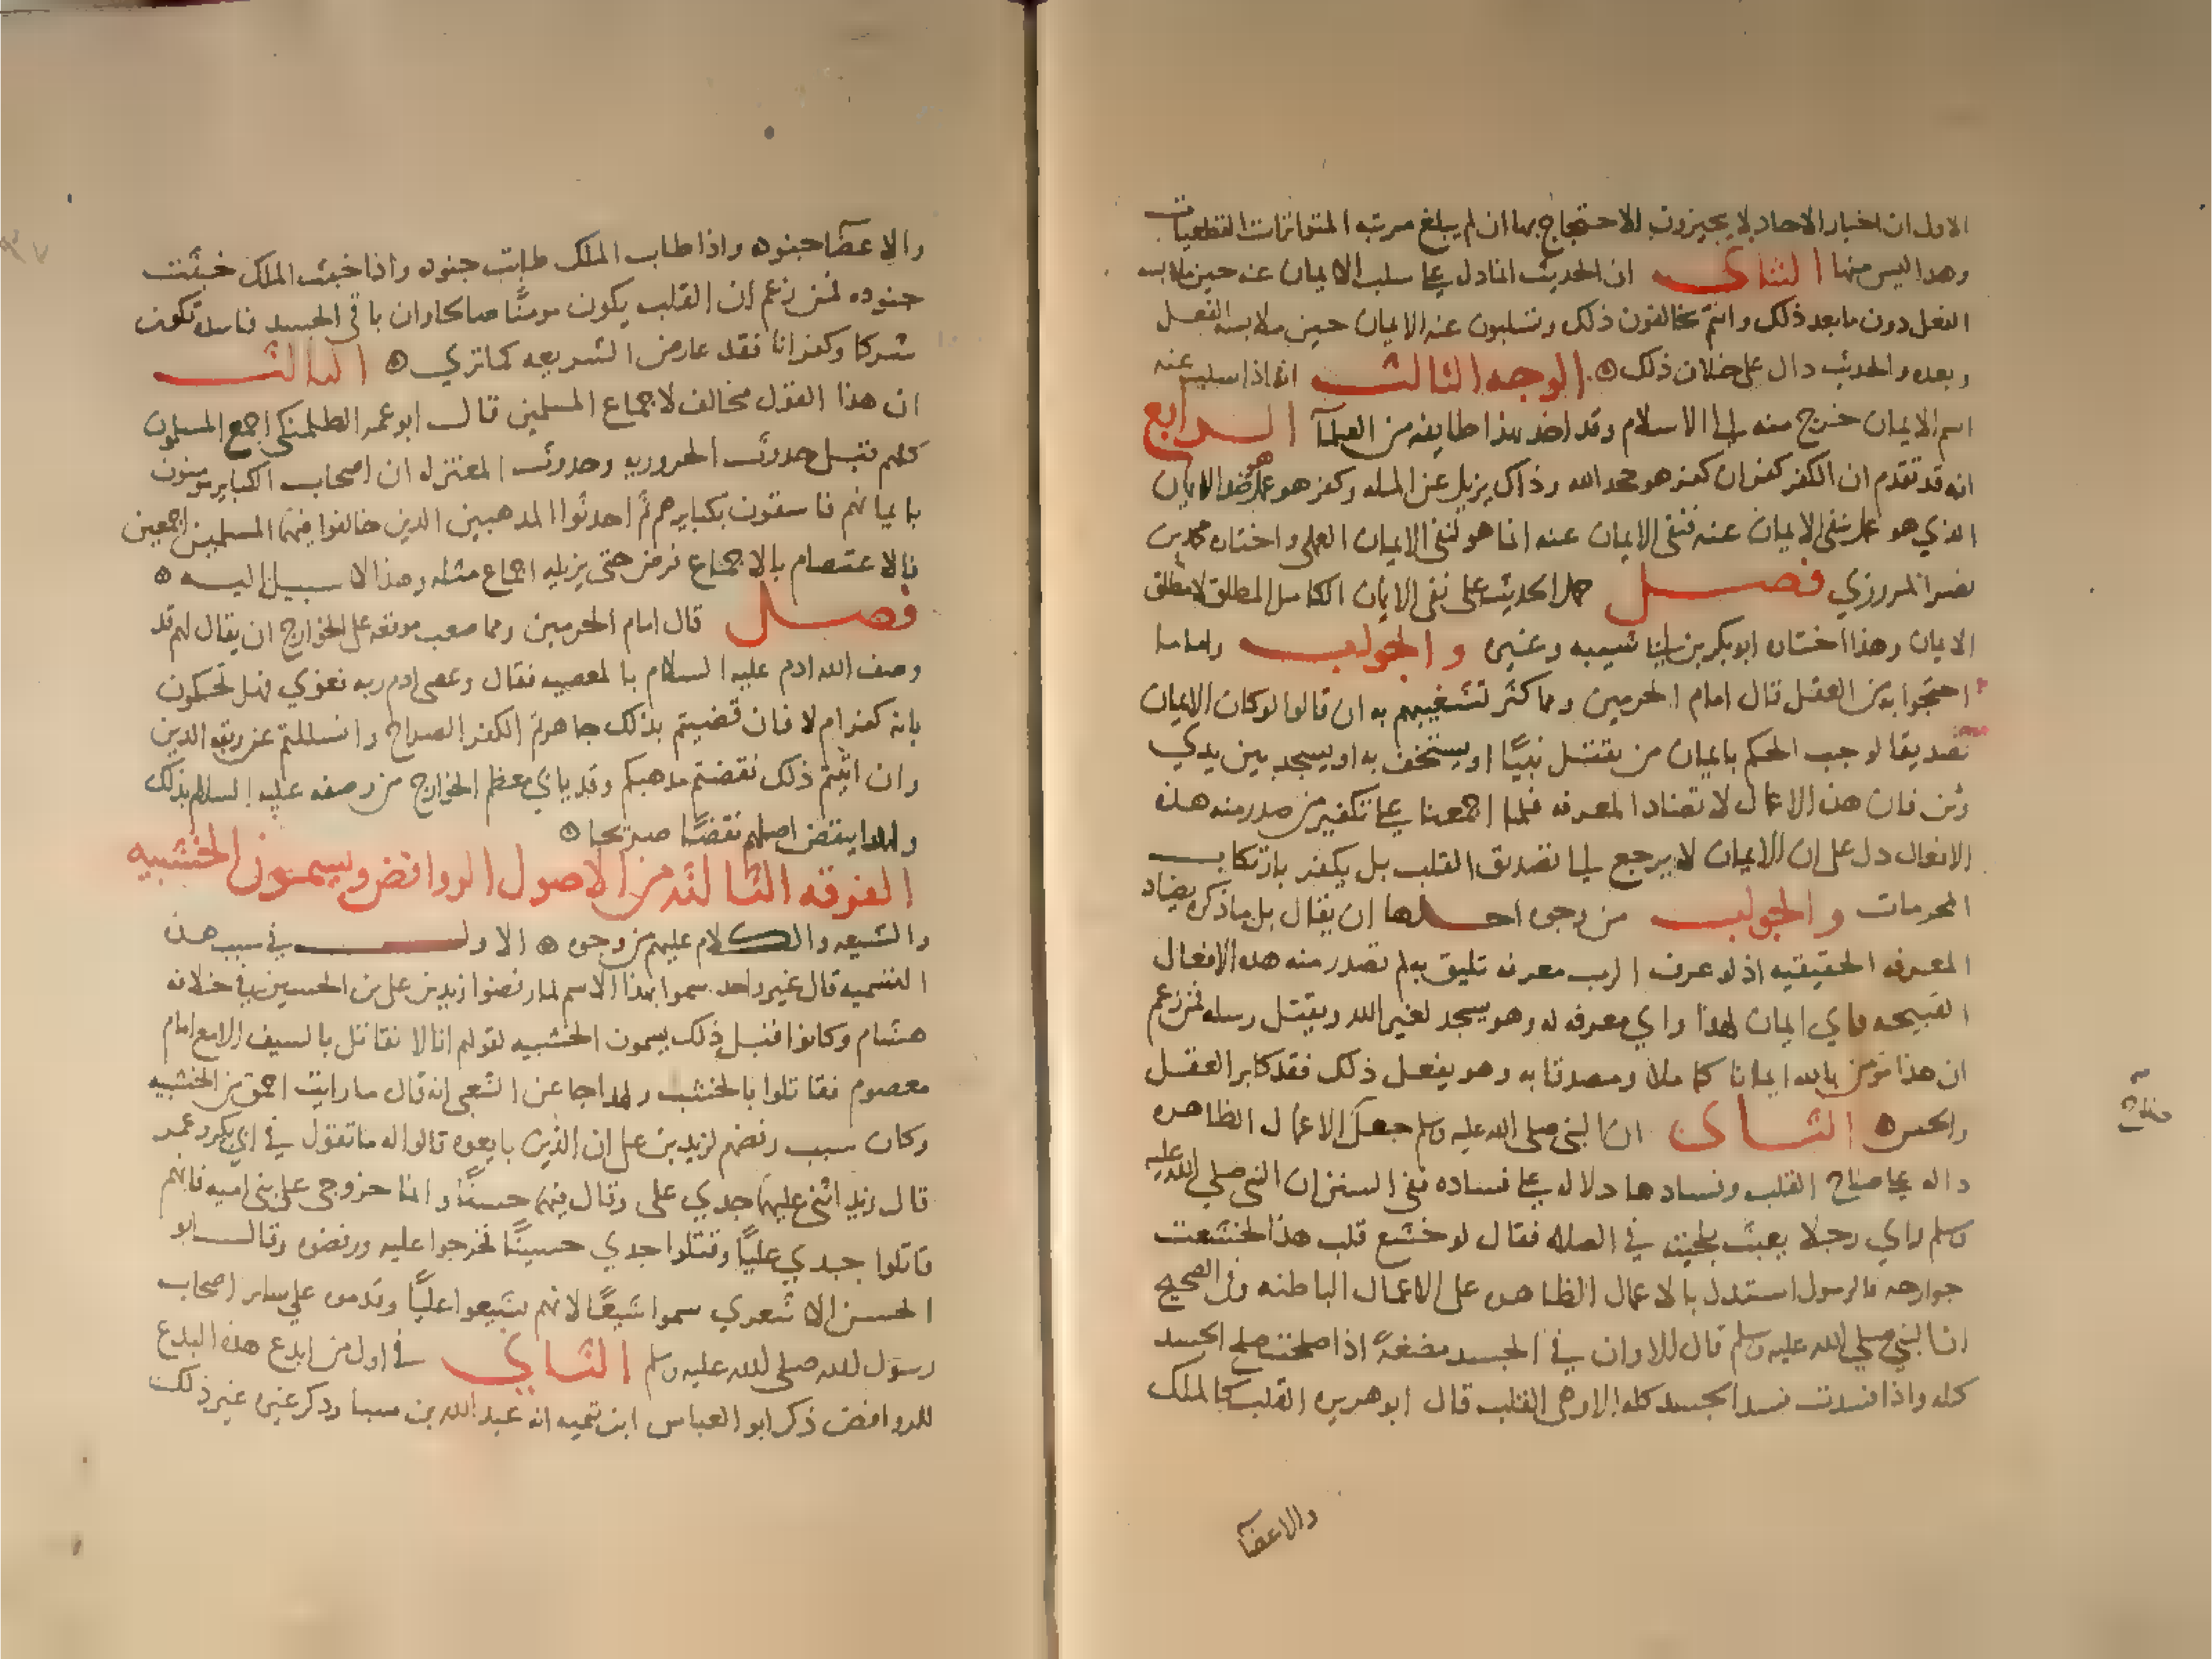 الاول ان اخبار الاحاد لا يجيزون الاحتجاج بها ان لم يبلغ مرتبه المتواترات القطعيات
وهذا ليس منها الثاني ان الحديث انما دل على سلب الايمان عنه حين ملابسه
الفعل دون ما بعد ذلك وانتم تخالفون ذلك وتسلبون عنه الايمان حين ملابسه الفعل
وبعده والحديث دال على خلاف ذلك ه الوجه الثالث انه اذا سلب عنه
اسم الايمان خرج منه الى الاسلام وقد اخذ بهذا طايفه من العلمآ الرابع
انه قد تقدم ان الكفر كفران كفر هو جحد الله وذاك يزيل عن المله وكفر هو عمل هو ضد الايمان
الذي هو عمل فنفى الايمان عنه انما هو لنفى الايمان العملي واختاره محمد بن
نصر المروزي فصل حمل الحديث على نفى الايمان الكامل المطلق لا مطلق
الايمان وهذا اختاره ابو بكر بن ابي شيبه وغيره والجواب واما ما
احتجوا به من العقل قال امام الحرمين ومما كثر تشغيبهم به ان قالوا لو كان الايمان
تصديقا لوجب الحكم بايمان من يقتل نبيًا او يستخف به او يسجد بين يدي
وثن فان هذه الاعمال لا تضاد المعرفه فلما اجمعنا على تكفير من صدر منه هذه
الافعال دل على ان الايمان لا يرجع الى تصديق القلب بل يكفر بارتكاب
المحرمات والجواب من وجوه احدها ان يقال بل ما ذكره يضاد
المعرفه الحقيقيه اذ لو عرف الرب معرفه تليق به لم تصدر منه هذه الافعال
القبيحه فاي ايمان لهذا واي معرفه له وهو يسجد لغير الله ويقتل رسله فمن زعم
ان هذا مومن بالله ايمانا كاملا ومصدقا به وهو يفعل ذلك فقد كابر العقل
والحس ه الثاني ان النبي صلى الله عليه وسلم جعل الاعمال الظاهره
داله على صلاح القلب وفسادها دلاله على فساده ففى السنن ان النبي صلى الله عليه
وسلم راي رجلا يعبث بلحيته في الصلاه فقال لو خشع قلب هذا لخشعت
جوارحه فالرسول استدل بالاعمال الظاهره على الاعمال الباطنه وفى الصحيح
ان النبي صلى الله عليه وسلم قال الا وان في الجسد مضغةً اذا صلحت صلح الجسد
كله واذا فسدت فسد الجسد كله الا وهي القلب قال ابو هريره القلب كالملك
والاعضآ
والاعضآ جنوده واذا طاب الملك طابت جنوده واذا خبث الملك خبثت
جنوده فمن زعم ان القلب يكون مومنًا وان باقي الجسد تكون
شركا وكفرانا فقد عارض الشريعه كما تري ه الثالث
ان هذا القول مخالف لاجماع المسلمين قال ابو عمر الطلمنكي اجمع المسلمون
كلهم قبل حدوث الحروريه وحدوث المعتزله ان اصحاب الكباير مومنون
بايمانهم فاسقون بكبايرهم ثم احدثوا المذهبين الذين خالفوا فيهما المسلمين اجمعين
فالاعتصام بالاجماع فرض حتى يزيله اجماع مثله وهذا لا سبيل اليه ه
فصل قال امام الحرمين ومما صعب موقعه على الخوارج ان يقال لهم قد
وصف الله ادم عليه السلام بالمعصيه فقال وعصى ادم ربه فغوي فهل تحكمون
بانه كفر ام لا فان قضيتم بذلك جاهرتم الكفر الصراح وانسللتم عن ربقه الدين
وان ابيتم ذلك نقضتم مذهبكم وقد يابي معظم الخوارج من وصفه عليه السلام بذلك
ولهذا ينقض اصلهم نقضًا صريحا ه
الفرقه الثالثه من الاصول الروافض ويسمون الخشبيه
والشيعه والكلام عليهم من وجوه ه الاول في سبب هذه
التسميه قال غير واحد سموا بهذا الاسم لما رفضوا زيد بن علي بن الحسين في خلافه
هشام وكانوا قبل ذلك يسمون الخشبيه لقولهم انا لا نقاتل بالسيف الا مع امام
معصوم فقاتلوا بالخشب ولهذا جا عن الشعبي انه قال ما رايت احمق من الخشبيه
وكان سبب رفضهم لزيد بن علي ان الذين بايعوه قالوا له ما تقول في ابي بكر وعمر
قال زيد اثنى عليهما جدي على وقال فيهما حسنًا وانما خروجي على بنى اميه فانهم
قاتلوا جدي عليًا وقتلوا جدي حسينًا فخرجوا عليه ورفضوه وقال ابو
الحسن الاشعري سموا شيعًا لانهم شيعوا عليًا وقدموه على ساير اصحاب
رسول الله صلى الله عليه وسلم الثاني في اول من ابدع هذه البدع
للروافض ذكر ابو العباس ابن تيميه انه عبد الله بن سبا وذكر غيره غير ذلك